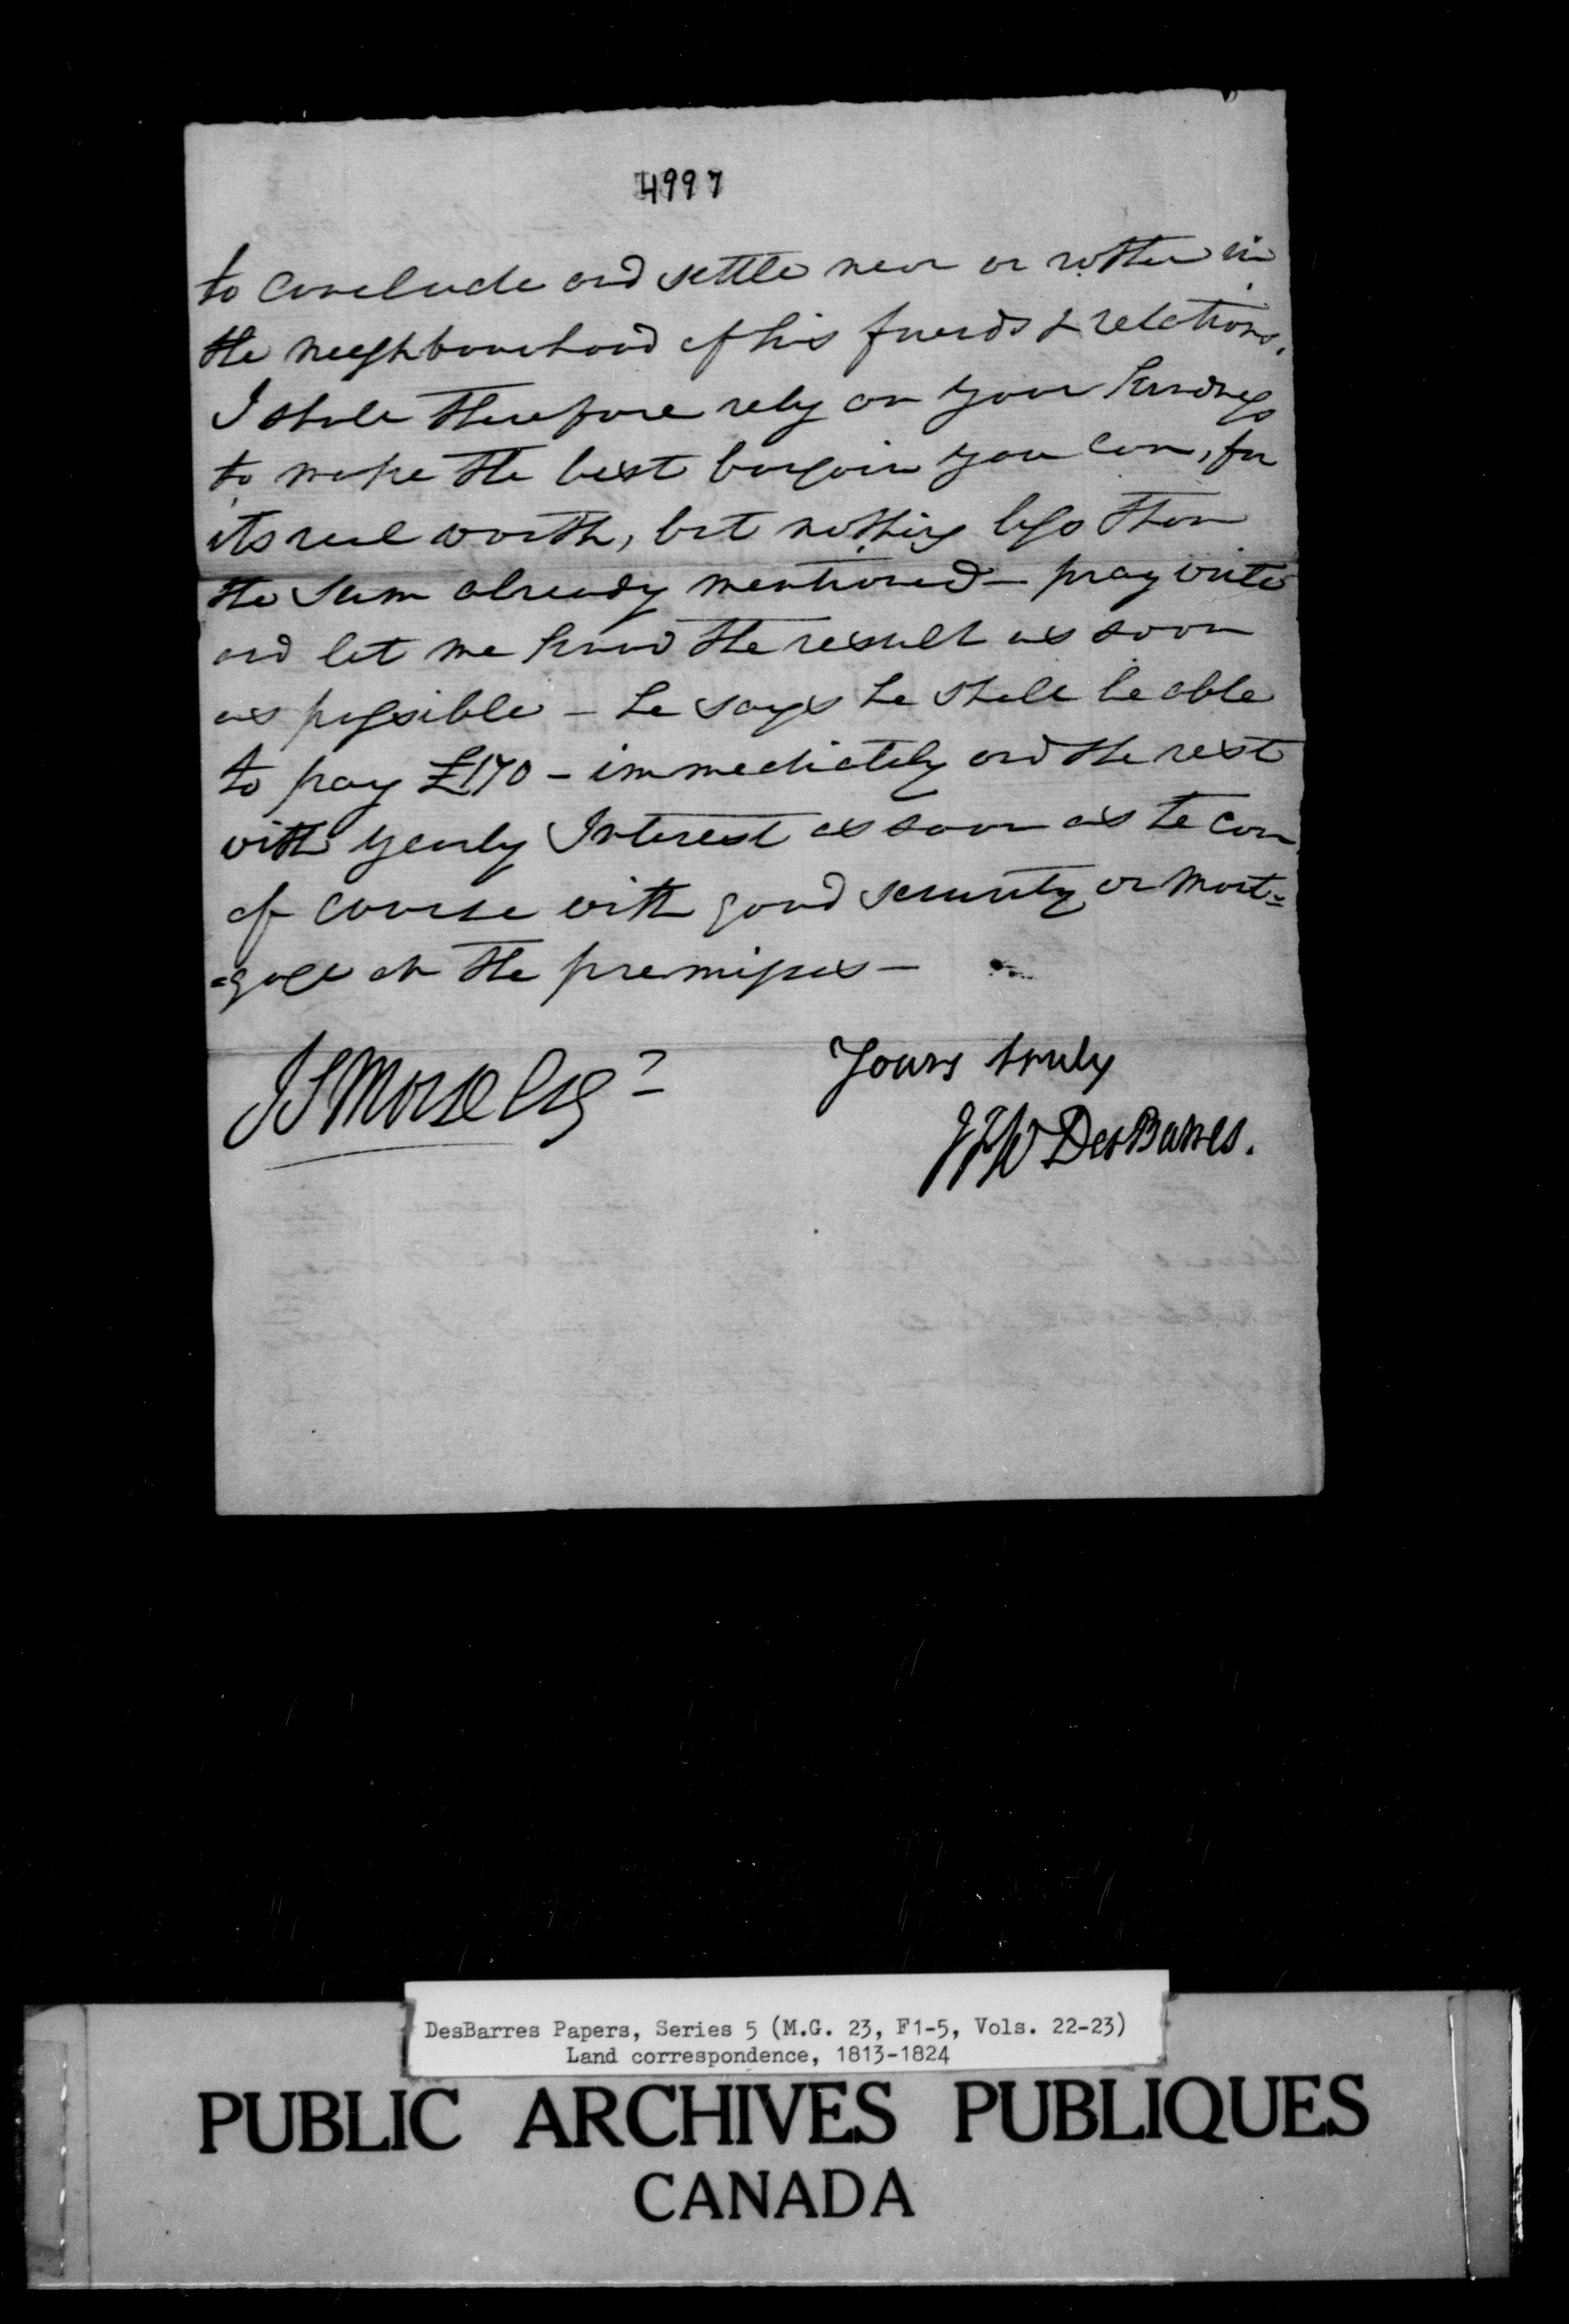 4997
to conclude and settle near or rather in
the neighbourhood of his friends & relations.
I shall therefore rely on your kindness
to make the best bargain you can, for
its real worth, but nothing less than
the sum already mentioned — pray write
and let me know the result as soon
as possible — he says he shall be able
to pay £170 — immediately and the rest
with yearly Interest as soon as he can
of course with good security or mort=
=gage on the premisses —
Yours truly
J S Morse Esqr
JFW DesBarres.
DesBarres Papers, Series 5 (M.G. 23, F1-5, Vols. 22-23)
Land correspondence, 1813-1824
PUBLIC ARCHIVES PUBLIQUES
CANADA